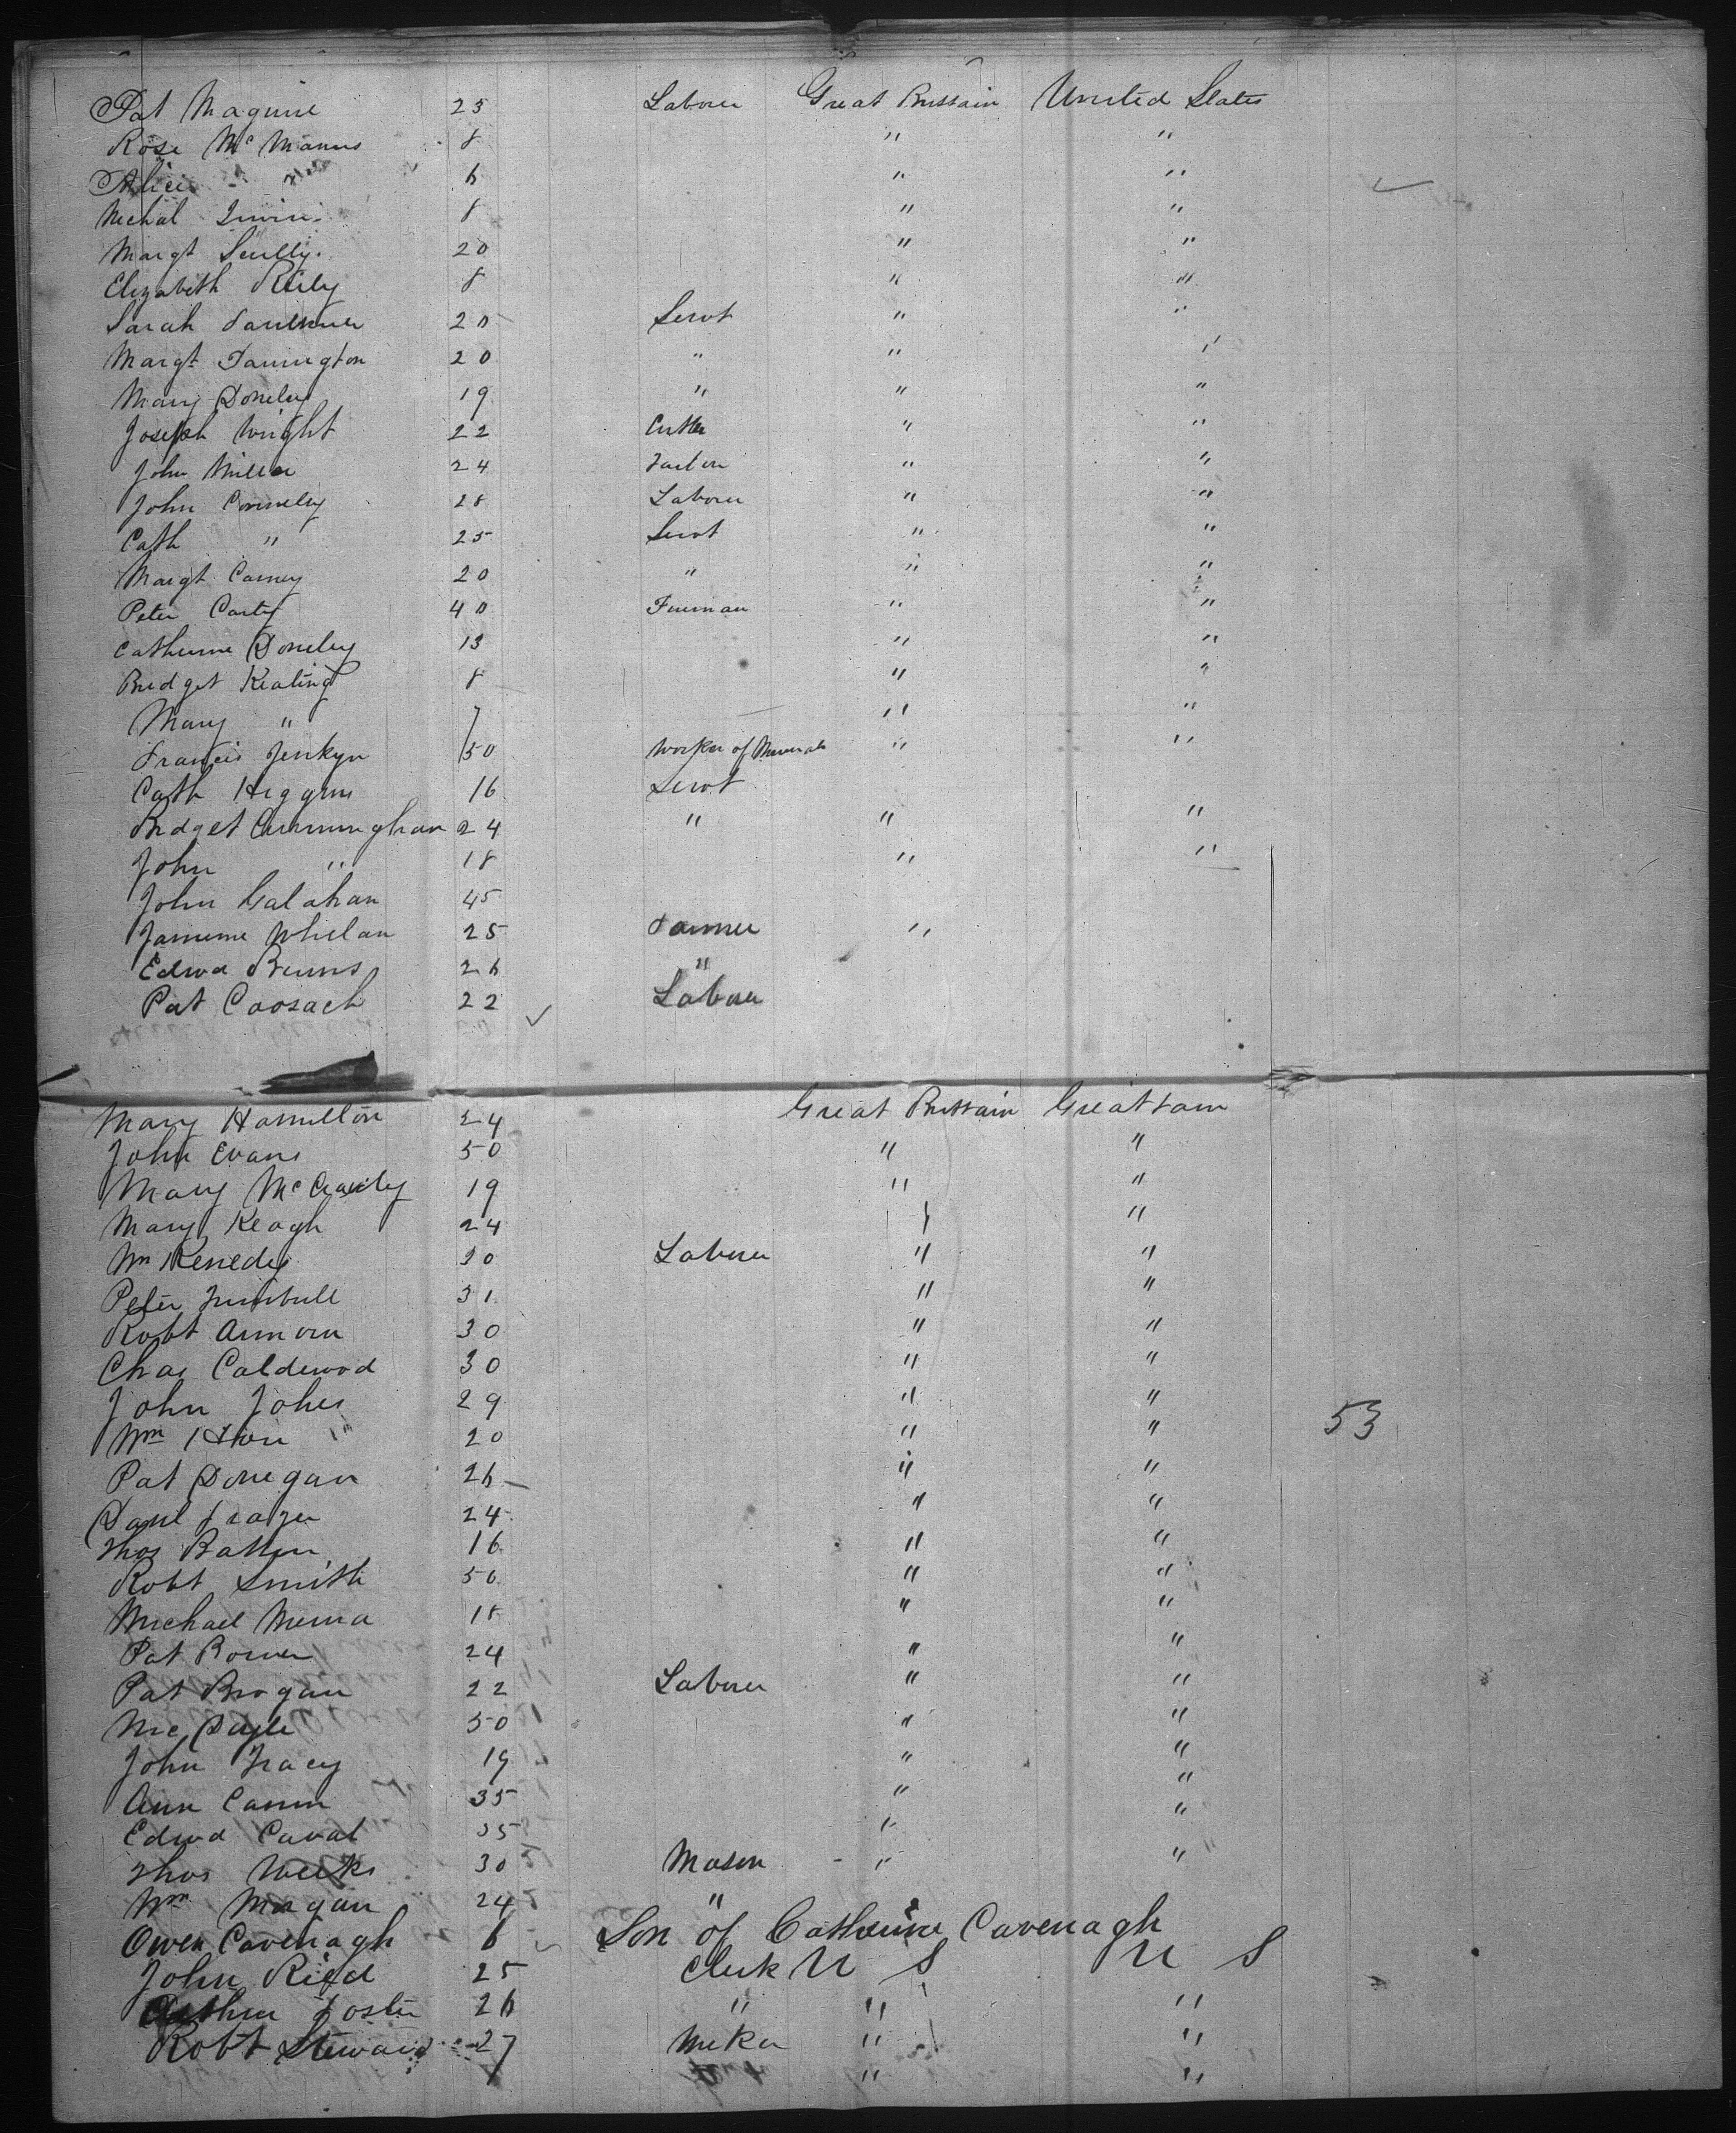 Pat Maguire 25 Laborer Great Brittain United States
Rose McManus 8 " "
Alice " 6 " "
Mechal 8 " "
Margt Scully 20 " "
Elizabeth Reily 8 " "
Sarah Faulkner 20 Servt " "
Margt Farrington 20 " " "
Mary Doneley 19 " " "
Joseph Wright 22 Cutler " "
John Miller 24 " "
John Conneley 28 Laborer " "
Cath " 25 Servt " "
Margt Carney 20 " " "
Peter Carty 40 " "
Catherine Doneley 13 " "
Bridget Keating 8 " "
Mary " 7 " "
Francis Jenkyn 50 Worker of Minerals " "
Cath Higgins 16 Servt
Bridget Cunningham 24 " " "
John " 18 " "
John Galahan 45
Whelan 25 Farmer "
Edwd Burns 26 "
Pat Coosach 22 Laborer
Mary Hamilton 24 Great Brittain Great tain
John Evans 50 " "
Mary 19 " "
Mary Keogh 24 "
Wm Kenedy 30 Laborer " "
Peter Turnbull 31 " "
Robt 30 " "
Chas Calderwod 30 " "
John Johes 29 " "
Wm 20 " " 53
Pat Donegan 26 " "
Danl Frazer 24 " "
Thos Batten 16 " "
Robt Smith 50 " "
Michael 18 " "
Pat 24 " "
Pat Brogan 22 Laborer " "
50 " "
John Tracy 19 " "
Ann 35 " "
Edwd 35 " "
Thos Weeks 30 Mason " "
Wm Morgan 24 "
Owen Cavenagh 6 Son of Catherine Cavenagh
John Ried 25 Clerk U S U S
Arthur Foster 26 " " "
Robt Steward 27 " "
" "